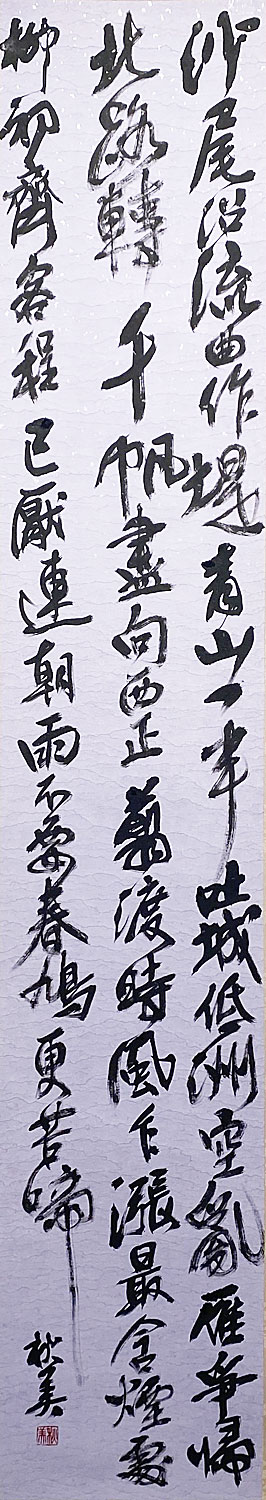 沙尾沿流曲作堤青山一半吐城低洲空亂雁爭歸
北路轉千帆盡向西正翦渡時風乍漲最含煙處
柳初齊客程已厭連朝雨不要春鳩更苦啼
美